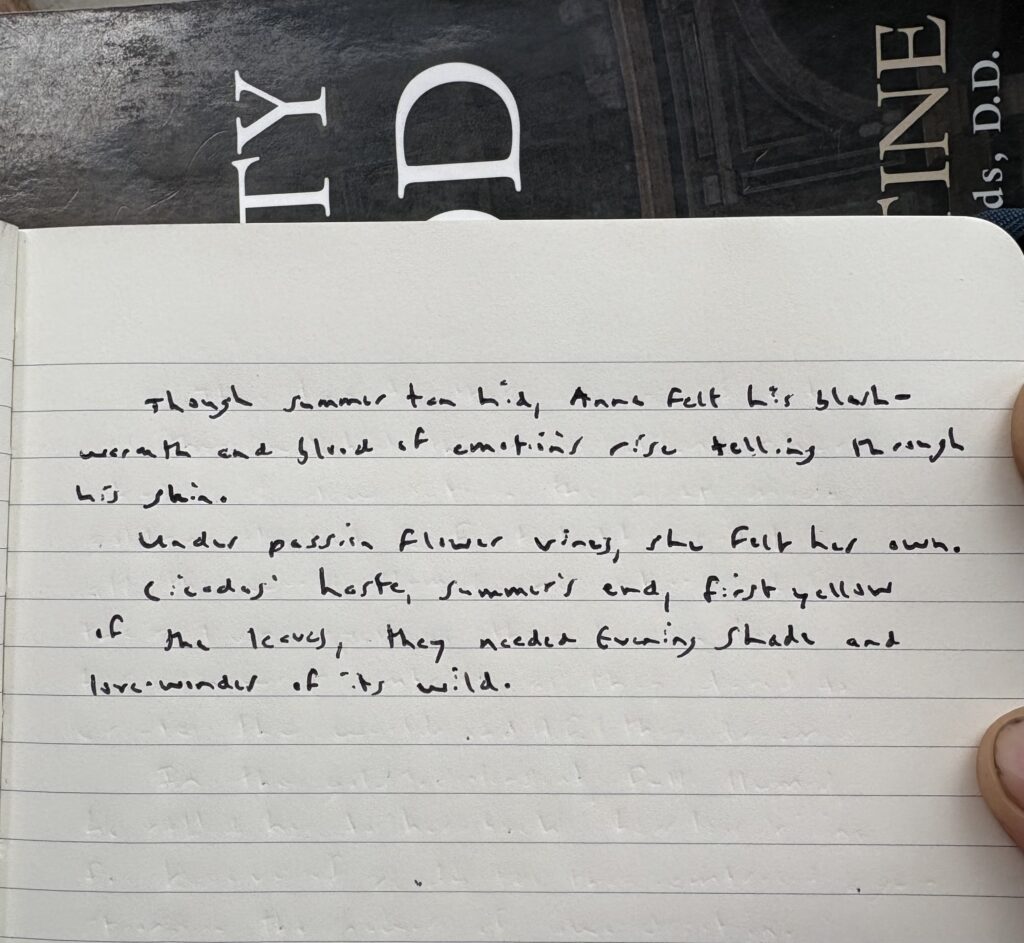 TY
D
TINE
ds, D.D.
Though summer tan hid, Anna felt his blush-
warmth and blood of emotions rise telling through
his skin.
Under passion flower vines, she felt her own.
Cicadas' haste, summer's end, first yellow
of the leaves, they needed Evening Shade and
love-wonder of its wild.